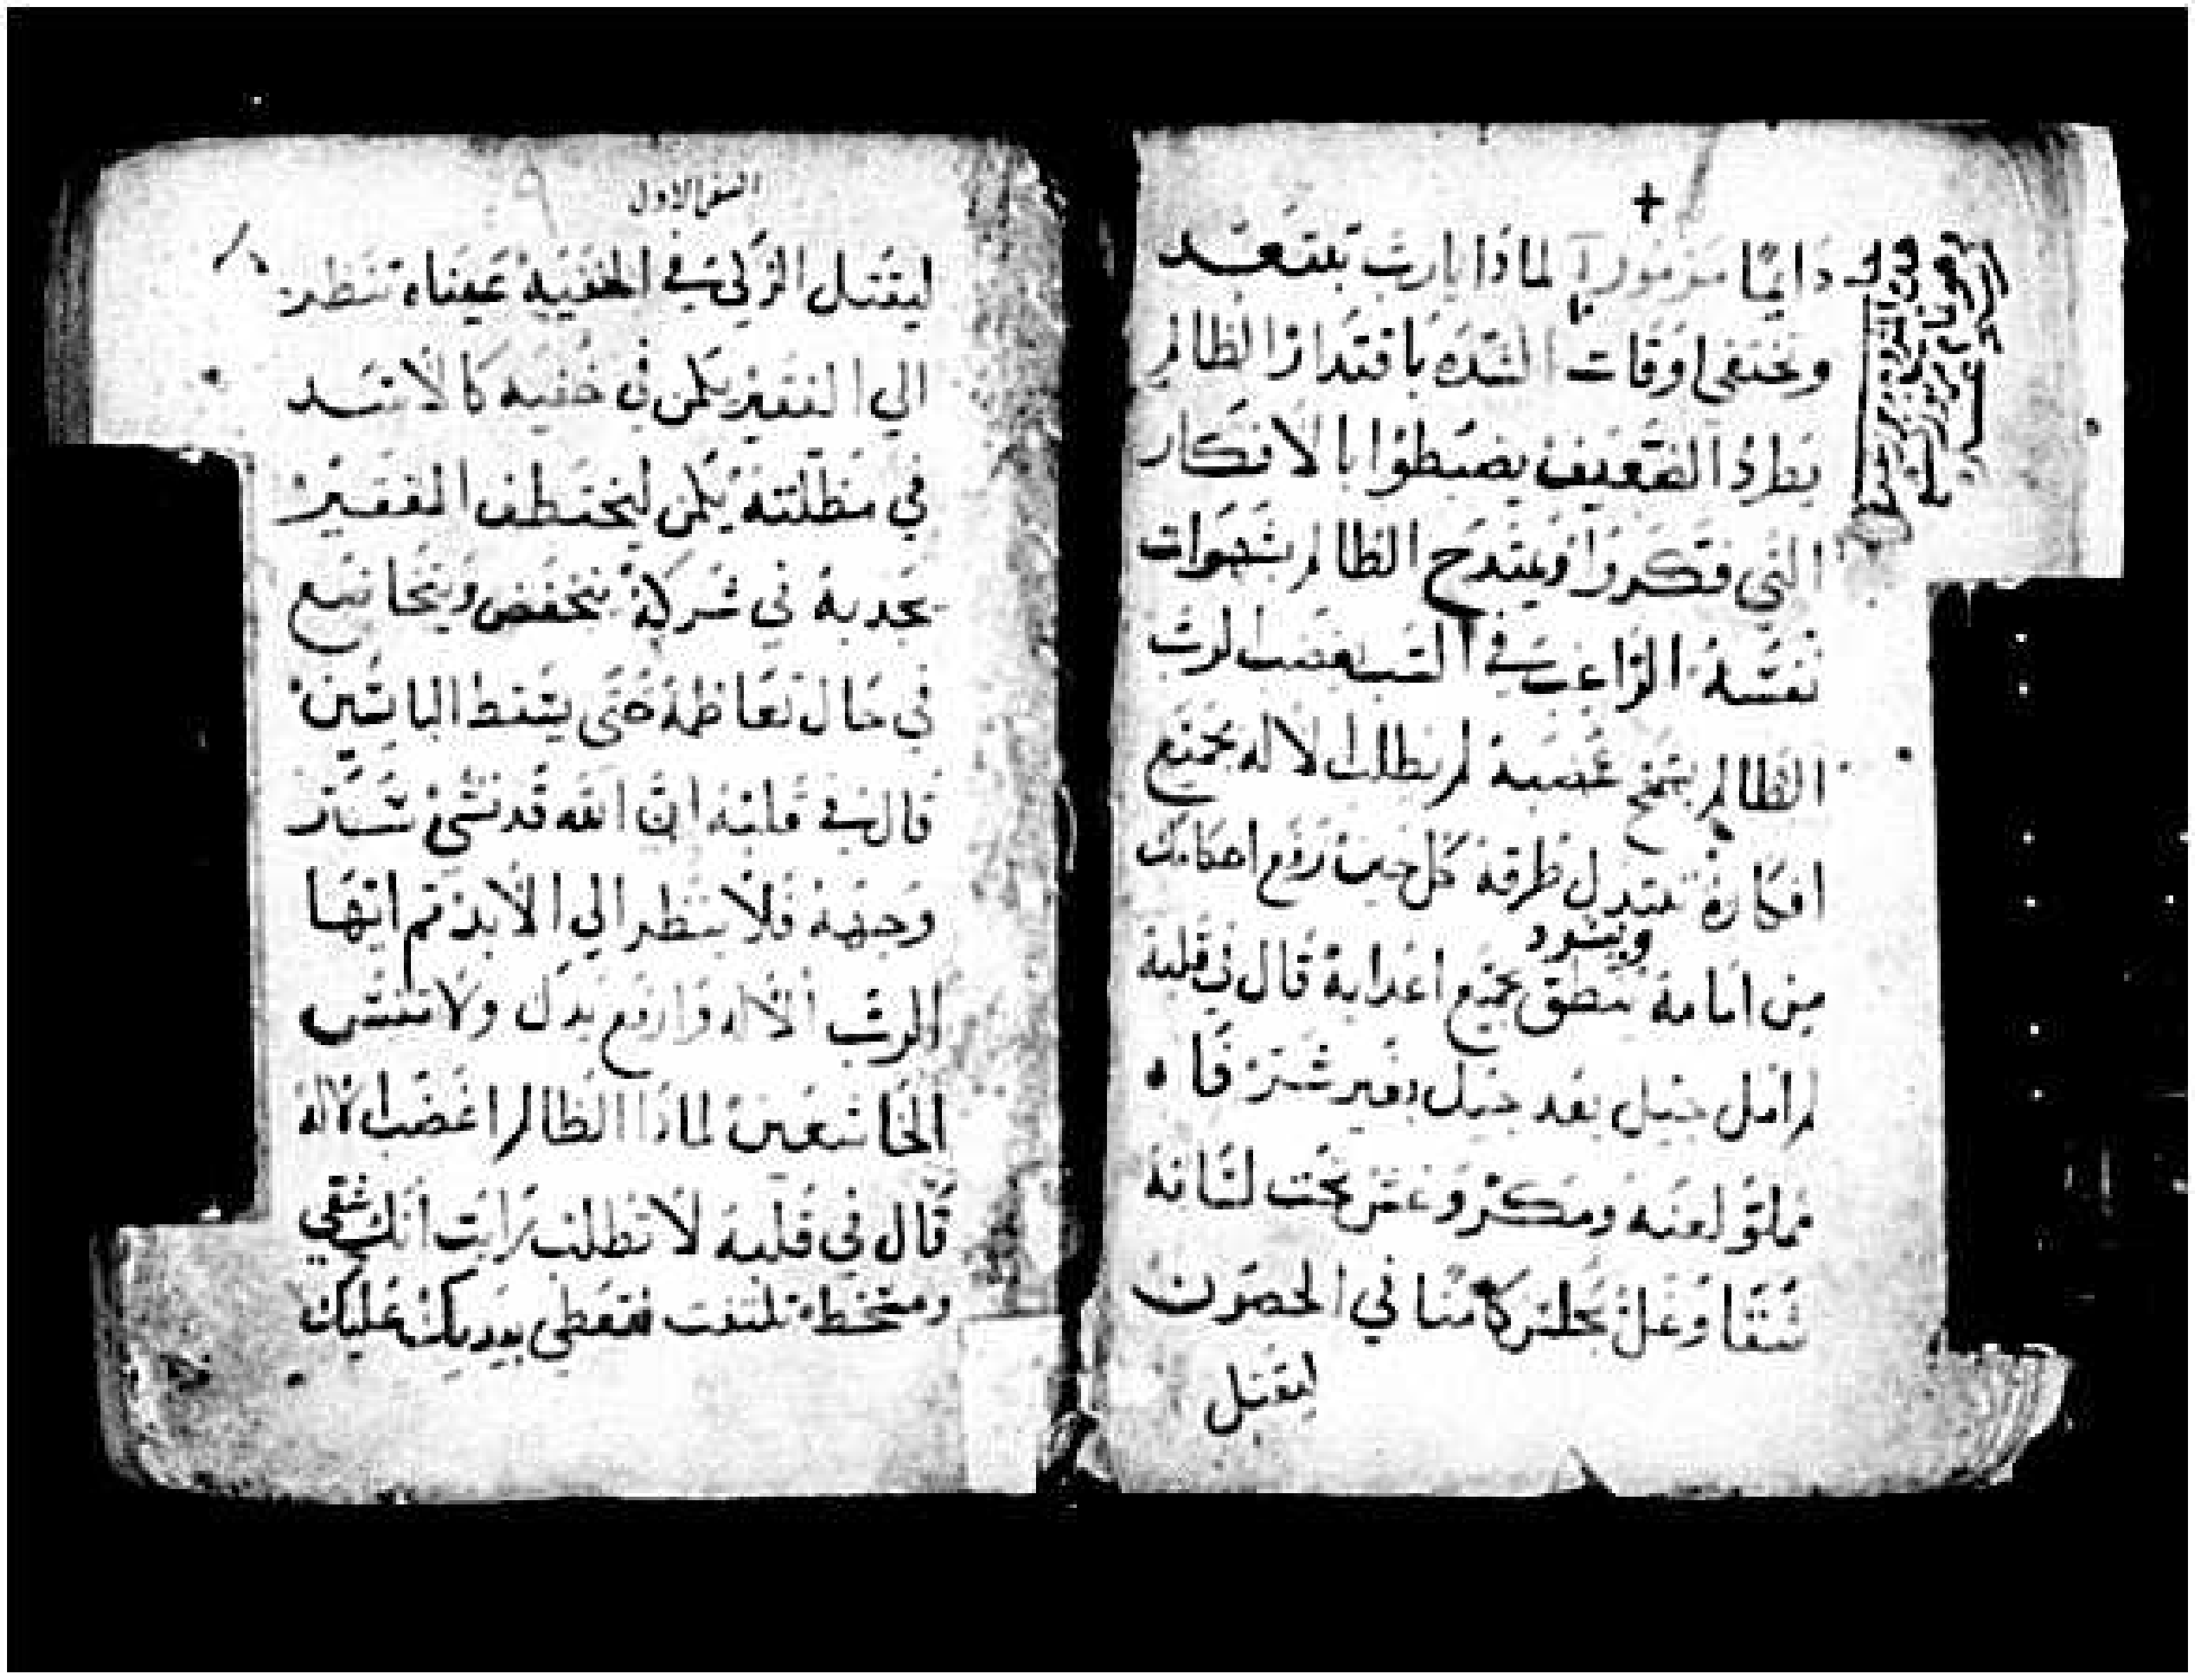 +
دايمًا مزمور لماذا يارب تبتعد
وتختفي اوقات الشده باقتدار الظالم
يطرد الضعيف يضبطوا بالافكار
التي فتكروا ويمتدح الظالم بشهوات
نفسه الراغب في السب يغضب لرب
الظالم بتمخ غضبه لم يطلب الاله بجميع
افكاره تبتدل طرقه كل حين رفع احكامك
من امامه ينطق بجميع اعدايه قال في قلبه
ويسود
لم ازل جيل بعد جيل بغير شر فا
مملو لعنه ومكر وغش تحت لسانه
شقا وغل يجلس كامنا في الحصون
ليقتل
وهو نام مزمور
السفر الاول
ليقتل الزكي في الخفيه عيناه تنظر
الي الفقير يكمن في خفيه كالاسد
في مظلته يكمن ليختطف الفقير
يجدبه في شركه ينخفض ويتخاشع
في حال تعاظمه حتي يسقط البائسين
قال في قلبه ان الله قد نسي ستر
وجهه فلا ينظر الي الابد قم ايها
الرب الاله وارفع يدك ولا تنسي
الخاشعين لماذا الظالم اغضب الاله
قال في قلبه لا تطلب رايت انك شقي
ومسخط تلتفت فتعطي بيديك عليك